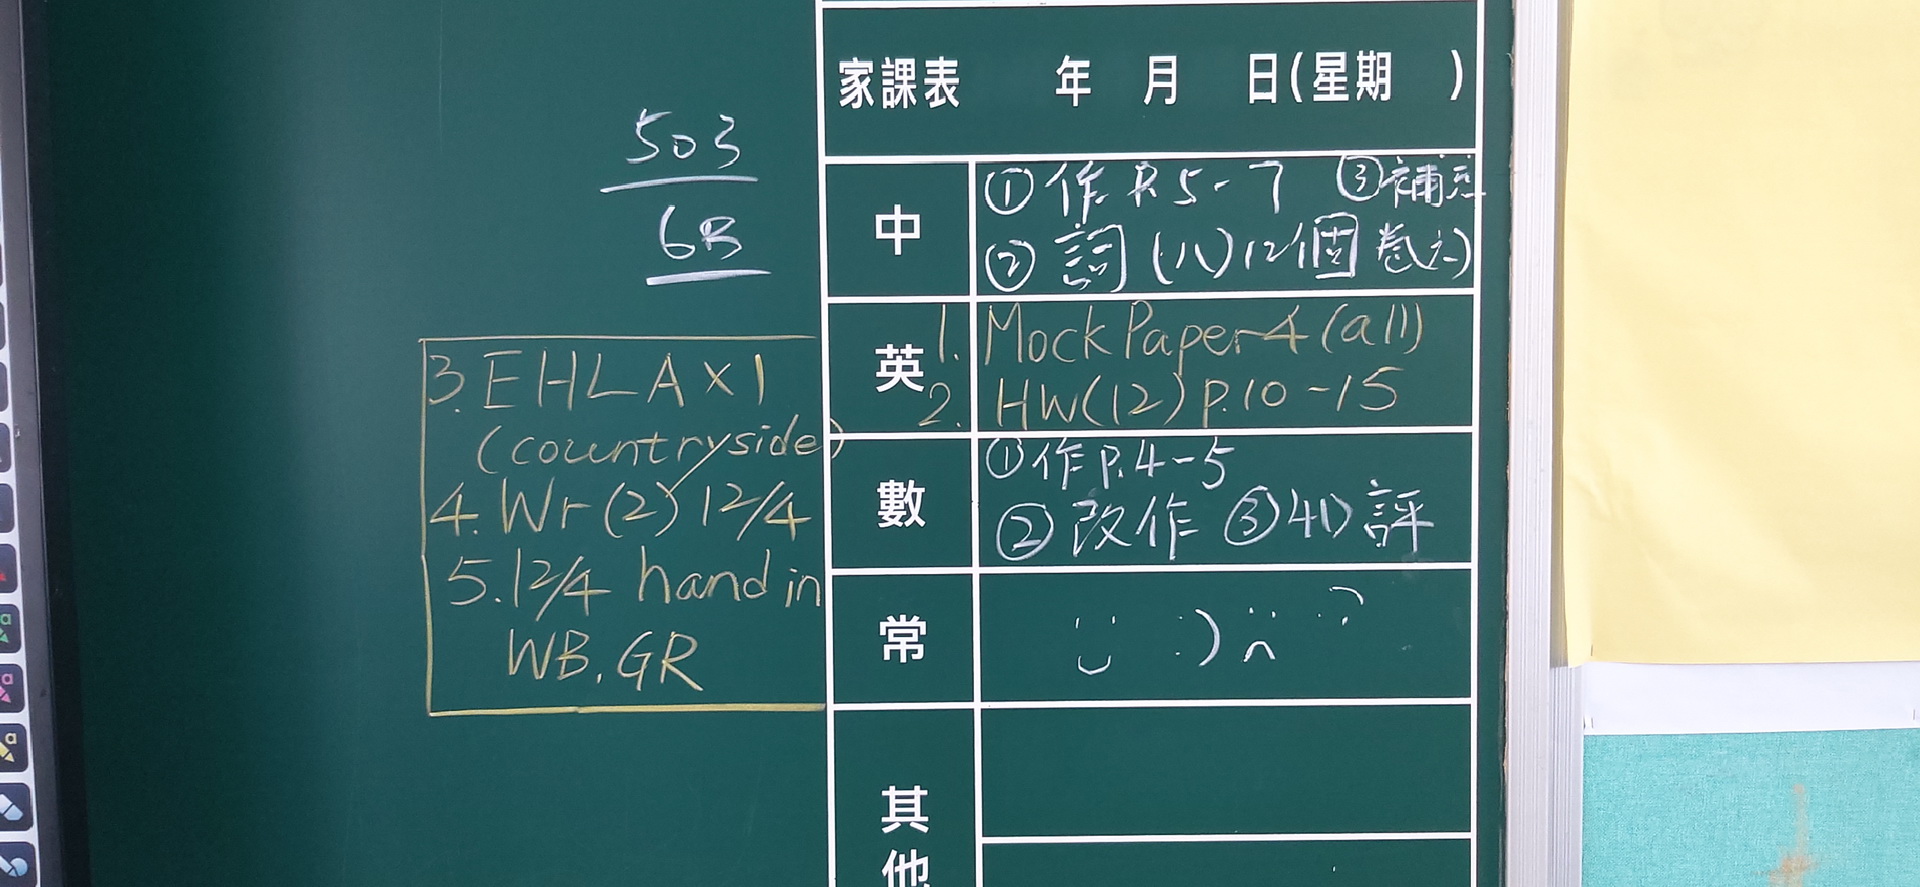 家課表 年 月 日(星期 )
503
6B
中
① 作 P.5-7 ③補充
② 詞(八)12個 卷六)
英
1. Mock Paper 4 (all)
2. HW(12) P.10-15
3. EHLA×1
(countryside)
4. Wr (2) 12/4
5. 12/4 hand in
WB. GR
數
①作 P.4-5
②改作 ③4D評
常
:)
其
他
a
a
a